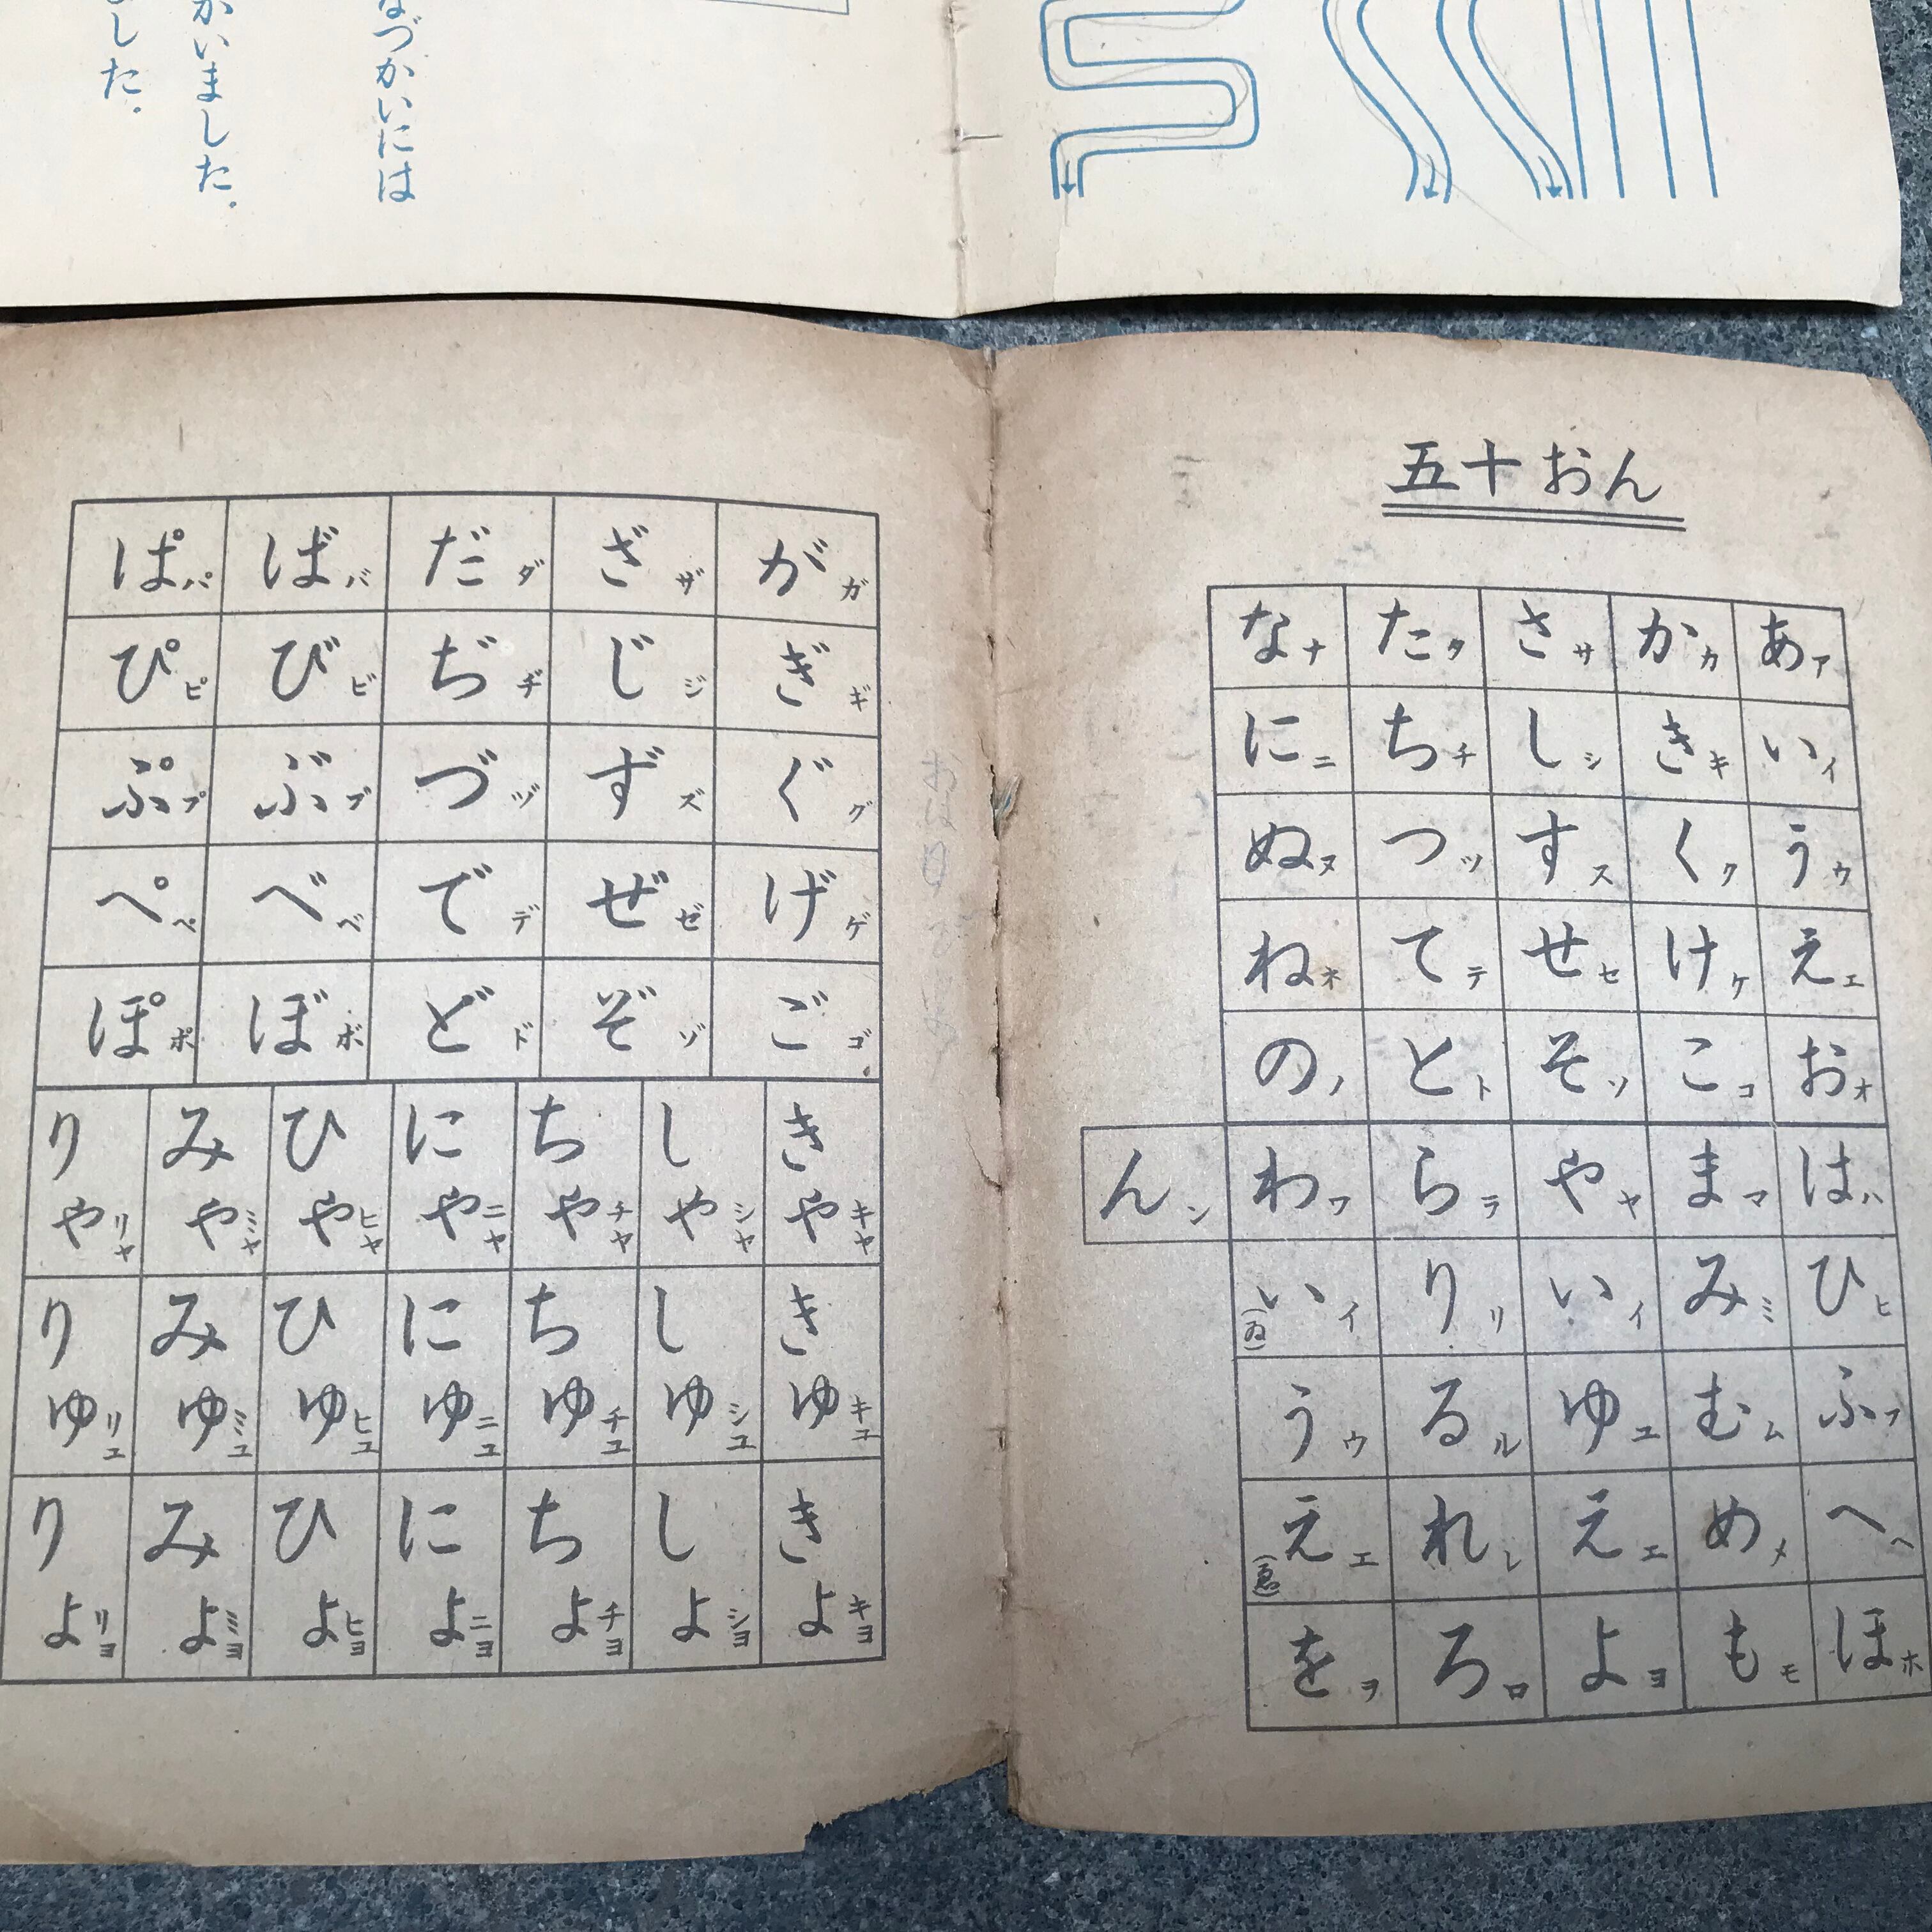 なづかいには
かいました。
した。
五十おん
あア かカ さサ たタ なナ
いイ きキ しシ ちチ にニ
うウ くク すス つツ ぬヌ
えエ けケ せセ てテ ねネ
おオ こコ そソ とト のノ
はハ まマ やヤ らラ わワ んン
ひヒ みミ いイ りリ いイ(ゐ)
ふフ むム ゆユ るル うウ
へヘ めメ えエ れレ えエ(ゑ)
ほホ もモ よヨ ろロ をヲ
がガ ざザ だダ ばバ ぱパ
ぎギ じジ ぢヂ びビ ぴピ
ぐグ ずズ づヅ ぶブ ぷプ
げゲ ぜゼ でデ べベ ぺペ
ごゴ ぞゾ どド ぼボ ぽポ
きやキヤ しやシヤ ちやチヤ にやニヤ ひやヒヤ みやミヤ りやリヤ
きゆキユ しゆシユ ちゆチユ にゆニユ ひゆヒユ みゆミユ りゆリユ
きよキヨ しよシヨ ちよチヨ によニヨ ひよヒヨ みよミヨ りよリヨ